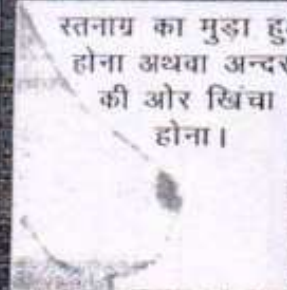 स्तनाग्र का मुड़ा
होना अथवा अन्दर
की ओर खिंचा
होना।